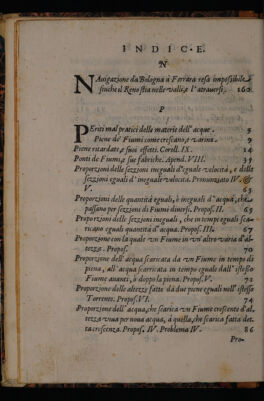 INDICE.
N
NAuigazione da Bologna à Ferrara resa impossibile,
finche il Reno stia nelle valli, e l'atrauersi. 160
P
PEriti mal pratici delle materie dell'acque. 5
Piene de' Fiumi come crescano, e varino 9
Piene ritardate, e suoi effetti. Coroll. IX. 14
Ponti de Fiumi, e sue fabriche. Apend. VIII. 35
Proporzioni delle sezzioni ineguali d'eguale velocità, e delle
sezzioni eguali d'ineguale velocità. Pronunziato IV.
V. 63
Proporzioni delle quantità eguali, è ineguali d'acqua, che
passano per sezzioni di Fiumi diuersi. Propos. II. 63
Proporzioni delle sezzioni ineguali, che in tempi eguali sca-
ricano eguali quantità d'acqua. Propos. III. 67
Proporzione con la quale vn Fiume in vn'altro varia d'al-
tezza. Propos. 70
Proporzione dell'acqua scaricata da vn Fiume in tempo di
piena, all'acqua scarricata in tempo eguale dall'istesso
Fiume auanti, è doppo la piena. Propos. V. 72
Proporzione delle altezze fatte da due piene eguali nell'istesso
Torrente. Propos. VI. 74
Proporzione dell'acqua, che scarica vn Fiume crescente d'al-
tezza vna per noua acqua, à quella, che scarica fatta det-
ta crescenza. Propos. IV. Problema IV. 86
Pro-